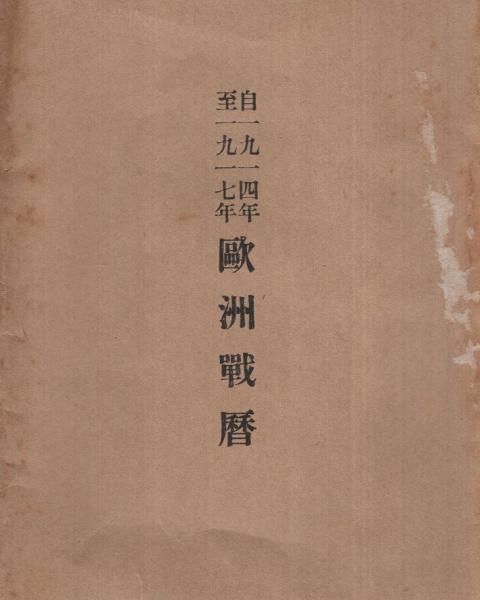 自一九一四年
至一九一七年
歐洲戰曆